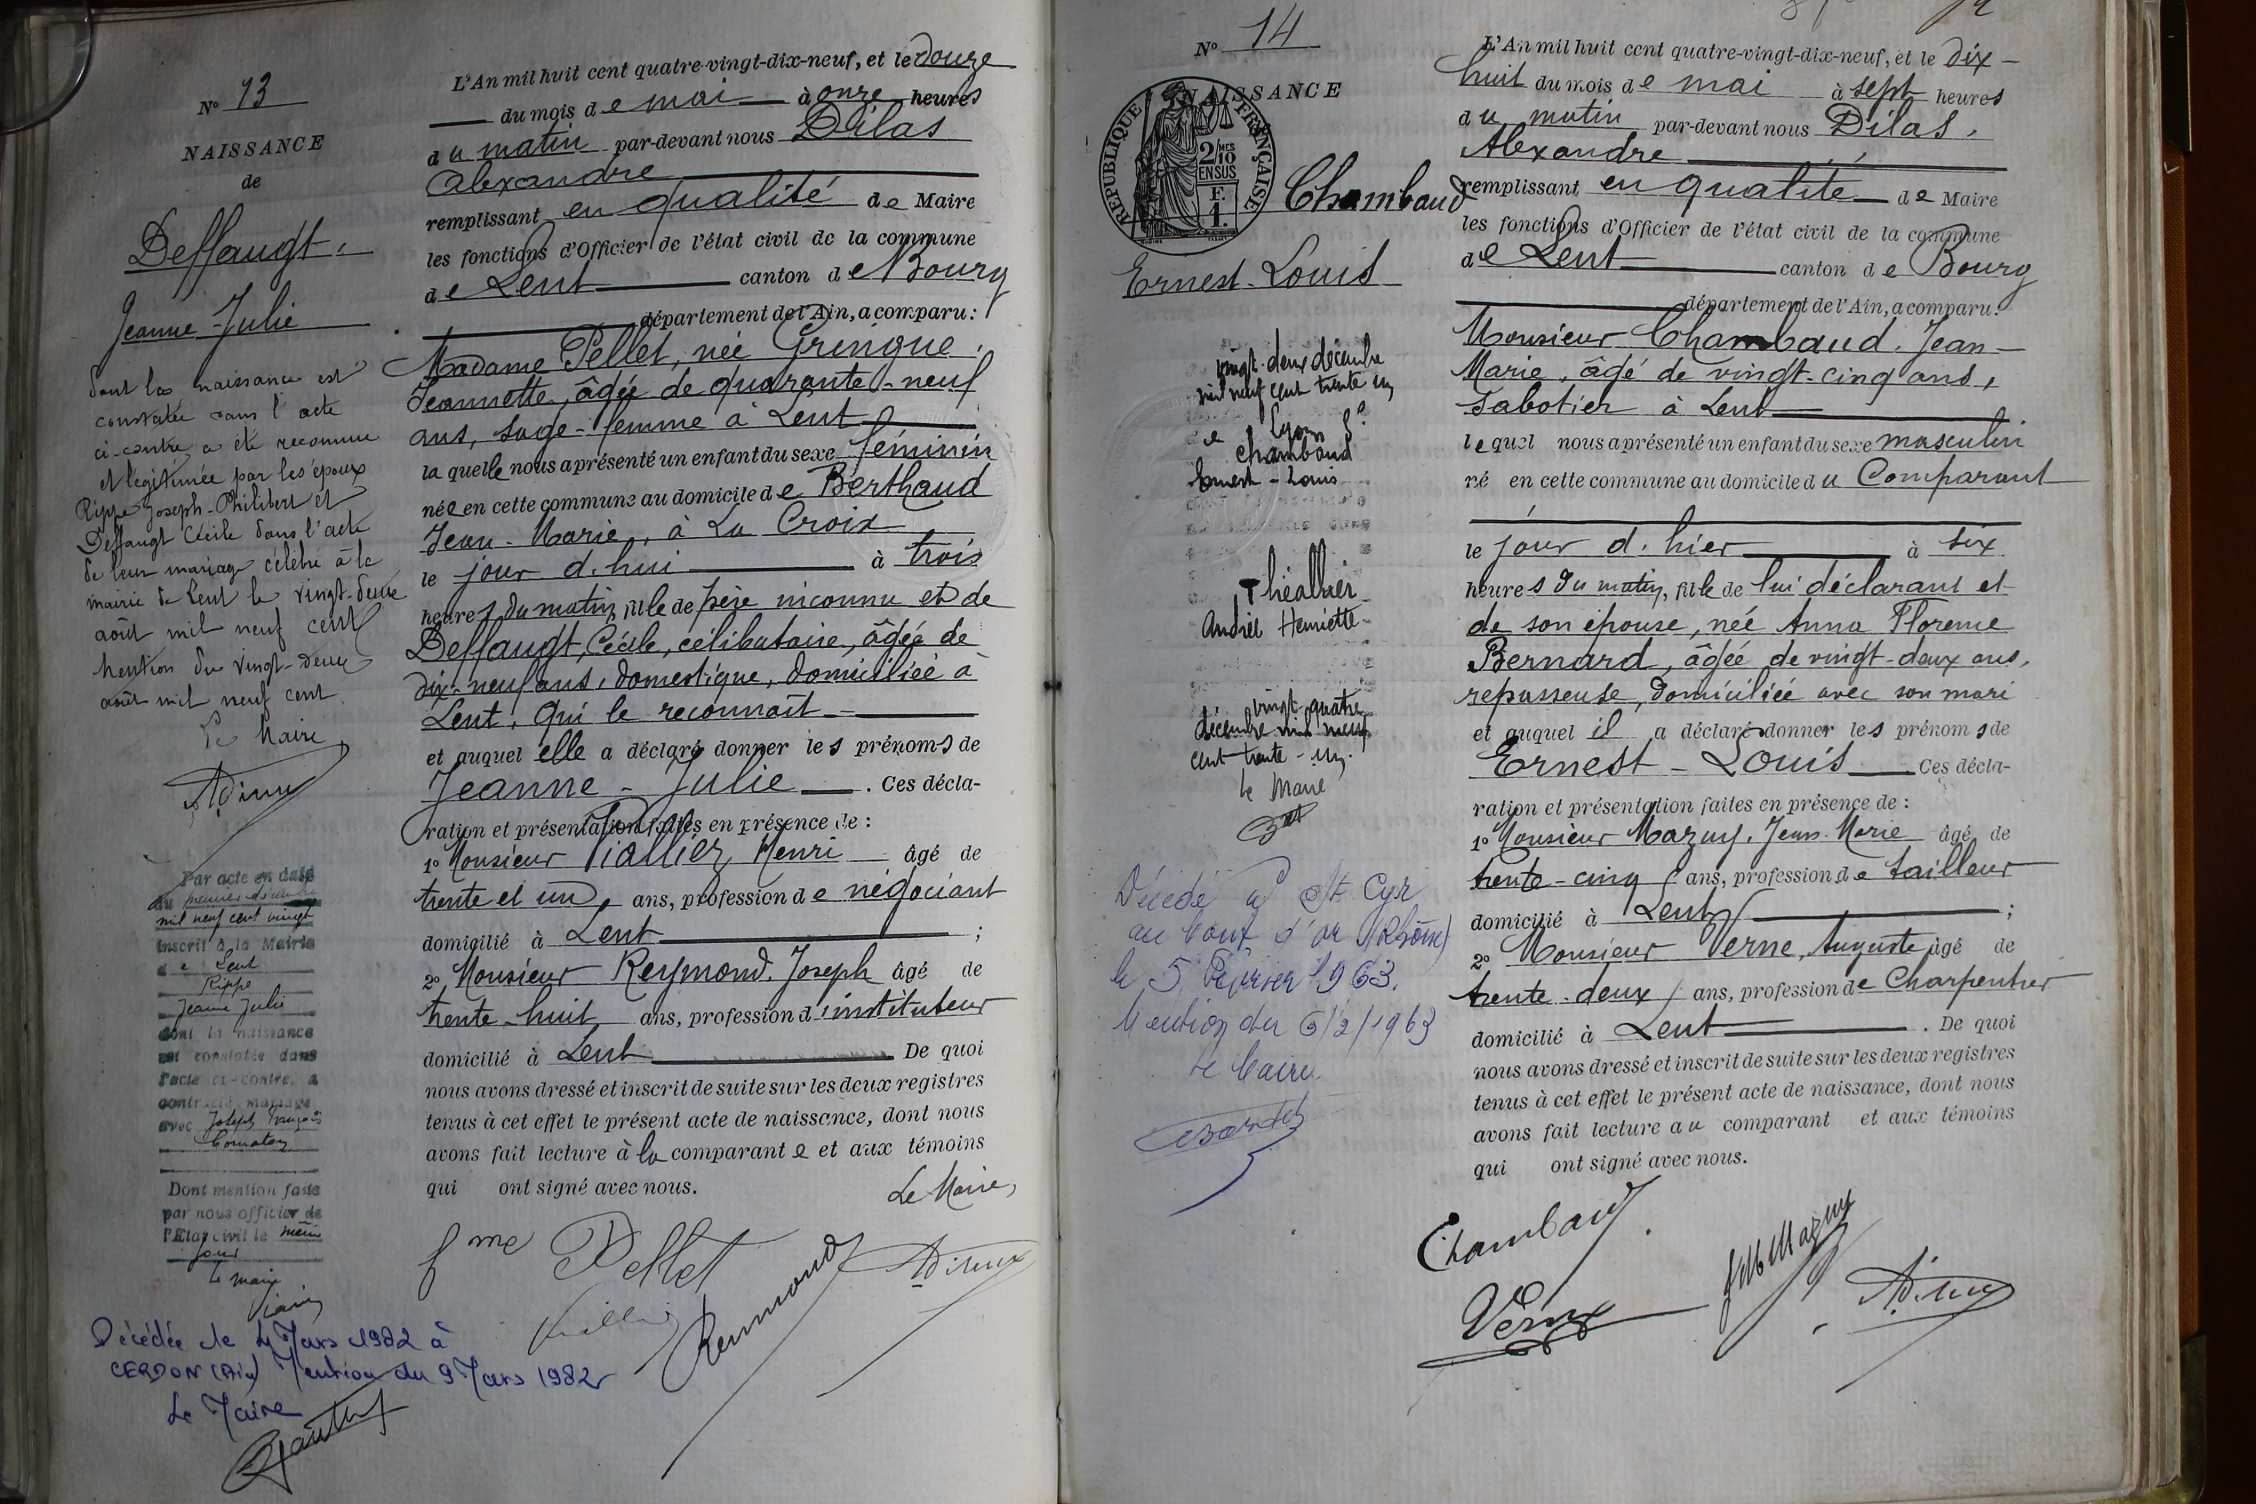 N° 13
NAISSANCE
de
Deffaugt
Jeanne-Julie
dont la naissance est
constatée dans l'acte
ci-contre a été reconnue
et légitimée par les époux
Rippe Joseph-Philibert et
Deffaugt Cécile dans l'acte
de leur mariage célébré à la
mairie de Lent le vingt-deux
août mil neuf cent
Mention du vingt-deux
août mil neuf cent
Le Maire
Par acte en date
du premier décembre
mil neuf cent vingt
inscrit à la Mairie
de Lent
Rippe
Jeanne Julie
dont la naissance
est constatée dans
l'acte ci-contre, a
contracté mariage
avec Joseph François
Dont mention faite
par nous officier de
l'Etat civil le même
jour
Le maire
Décédée le 4 Mars 1982 à
CERDON (Ain) Mention du 9 Mars 1982
Le Maire
L'An mil huit cent quatre-vingt-dix-neuf, et le douze
du mois de mai à onze heures
du matin par-devant nous Dilas
Alexandre
remplissant en qualité de Maire
les fonctions d'Officier de l'état civil de la commune
de Lent canton de Bourg
département de l'Ain, a comparu:
Madame Pellet, née Gringue,
Jeannette, âgée de quarante-neuf
ans, sage-femme à Lent
laquelle nous a présenté un enfant du sexe féminin
née en cette commune au domicile de Berthaud
Jean-Marie, à La Croix
le jour d'hui à trois
heures du matin, fille de père inconnu et de
Deffaugt, Cécile, célibataire, âgée de
dix-neuf ans, domestique, domiciliée à
Lent, qui le reconnaît
et auquel elle a déclaré donner les prénoms de
Jeanne-Julie. Ces décla-
ration et présentation faites en présence de:
1° Monsieur Viallier, Henri âgé de
trente et un ans, profession de négociant
domicilié à Lent;
2° Monsieur Reymond, Joseph âgé de
trente-huit ans, profession d'instituteur
domicilié à Lent De quoi
nous avons dressé et inscrit de suite sur les deux registres
tenus à cet effet le présent acte de naissance, dont nous
avons fait lecture à la comparante et aux témoins
qui ont signé avec nous.
Le Maire,
fme Pellet
Reymond
N° 14
NAISSANCE
REPUBLIQUE FRANÇAISE
2/10 MES
EN SUS
F.
1.
Chambaud
Ernest-Louis
vingt-deux décembre
mil neuf cent trente un
Lyon
Chambaud
Ernest-Louis
Théallier
Andrée Henriette
vingt-quatre
décembre mil neuf
cent trente-un.
Le Maire
Décédé à St Cyr
au Mont d'or (Rhône)
le 5 Février 1963.
Mention du 6/2/1963
Le Maire
L'An mil huit cent quatre-vingt-dix-neuf, et le dix-
huit du mois de mai à sept heures
du matin par-devant nous Dilas,
Alexandre
remplissant en qualité de Maire
les fonctions d'Officier de l'état civil de la commune
de Lent canton de Bourg
département de l'Ain, a comparu:
Monsieur Chambaud, Jean-
Marie, âgé de vingt-cinq ans,
sabotier à Lent
lequel nous a présenté un enfant du sexe masculin
né en cette commune au domicile du Comparant
le jour d'hier à six
heures du matin, fils de lui déclarant et
de son épouse, née Anna Florence
Bernard, âgée de vingt-deux ans,
repasseuse, domiciliée avec son mari
et auquel il a déclaré donner les prénoms de
Ernest-Louis Ces décla-
ration et présentation faites en présence de:
1° Monsieur Mazuy, Jean-Marie âgé de
trente-cinq ans, profession de tailleur
domicilié à Lent;
2° Monsieur Verne, Auguste âgé de
trente-deux ans, profession de Charpentier
domicilié à Lent. De quoi
nous avons dressé et inscrit de suite sur les deux registres
tenus à cet effet le présent acte de naissance, dont nous
avons fait lecture au comparant et aux témoins
qui ont signé avec nous.
Chambaud
Verne
Mazuy